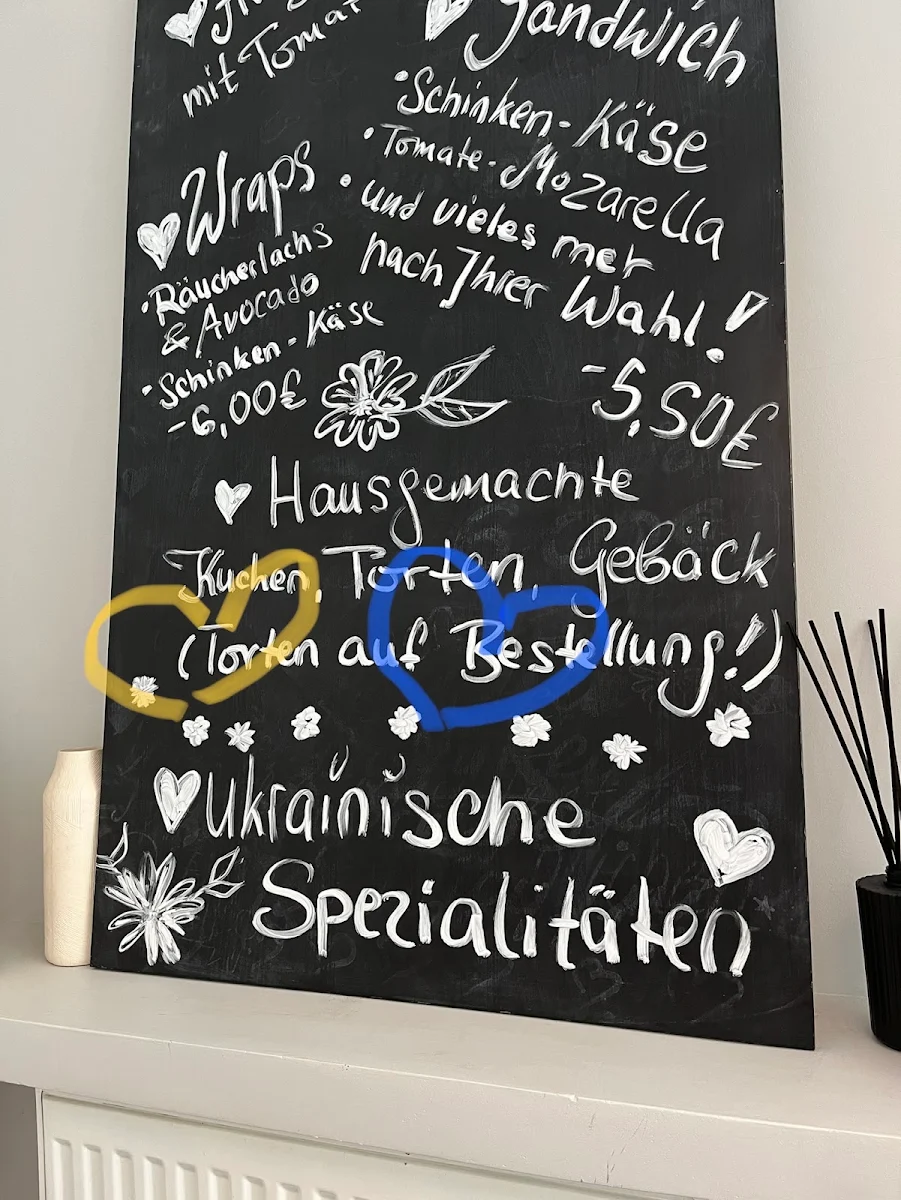 mit Tomat
Sandwich
• Schinken - Käse
• Tomate - Mozarella
• und vieles mer
nach Ihrer Wahl!
- 5,50€
Wraps
• Räucherlachs
& Avocado
- Schinken - Käse
- 6,00€
Hausgemachte
Kuchen, Torten, Gebäck
(Torten auf Bestellung!)
Ukrainische
Spezialitäten